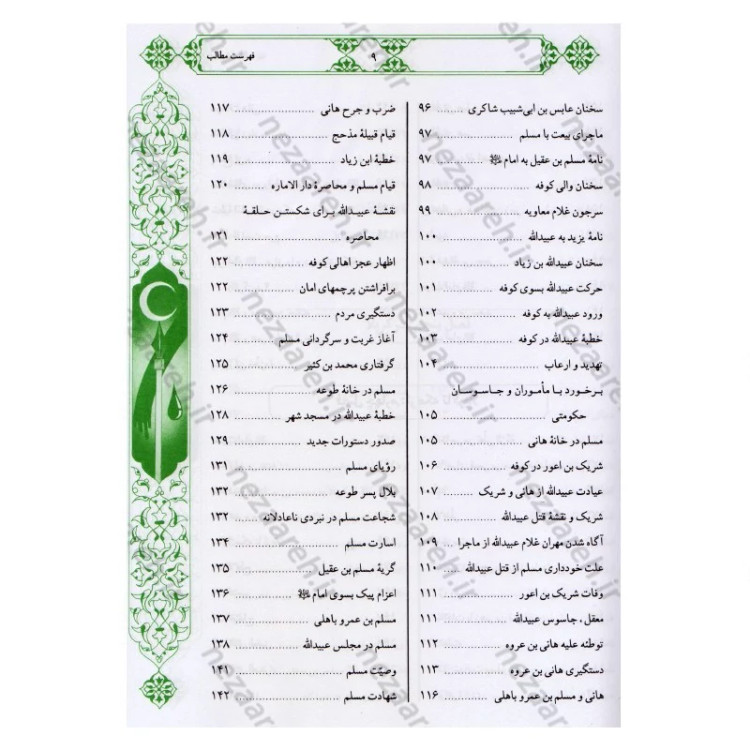 فهرست مطالب
۹
سخنان عابس بن ابی‌شبیب شاکری ۹۶
ماجرای بیعت با مسلم ۹۷
نامهٔ مسلم بن عقیل به امام ﷺ ۹۷
سخنان والی کوفه ۹۸
سرجون غلام معاویه ۹۹
نامهٔ یزید به عبیدالله ۱۰۰
سخنان عبیدالله بن زیاد ۱۰۰
حرکت عبیدالله بسوی کوفه ۱۰۱
ورود عبیدالله به کوفه ۱۰۲
خطبهٔ عبیدالله در کوفه ۱۰۳
تهدید و ارعاب ۱۰۴
برخورد با مأموران و جاسوسان
حکومتی ۱۰۵
مسلم در خانهٔ هانی ۱۰۵
شریک بن اعور در کوفه ۱۰۶
عیادت عبیدالله از هانی و شریک ۱۰۷
شریک و نقشهٔ قتل عبیدالله ۱۰۸
آگاه شدن مهران غلام عبیدالله از ماجرا ۱۰۹
علت خودداری مسلم از قتل عبیدالله ۱۱۰
وفات شریک بن اعور ۱۱۱
معقل، جاسوس عبیدالله ۱۱۱
توطئه علیه هانی بن عروه ۱۱۲
دستگیری هانی بن عروه ۱۱۳
هانی و مسلم بن عمرو باهلی ۱۱۶
ضرب و جرح هانی ۱۱۷
قیام قبیلهٔ مذحج ۱۱۸
خطبهٔ ابن زیاد ۱۱۹
قیام مسلم و محاصرهٔ دار الاماره ۱۲۰
نقشهٔ عبیدالله برای شکستن حلقهٔ
محاصره ۱۲۱
اظهار عجز اهالی کوفه ۱۲۲
برافراشتن پرچمهای امان ۱۲۲
دستگیری مردم ۱۲۳
آغاز غربت و سرگردانی مسلم ۱۲۴
گرفتاری محمد بن کثیر ۱۲۵
مسلم در خانهٔ طوعه ۱۲۶
خطبهٔ عبیدالله در مسجد شهر ۱۲۸
صدور دستورات جدید ۱۲۹
رؤیای مسلم ۱۳۱
بلال پسر طوعه ۱۳۲
شجاعت مسلم در نبردی ناعادلانه ۱۳۲
اسارت مسلم ۱۳۴
گریهٔ مسلم بن عقیل ۱۳۵
اعزام پیک بسوی امام ﷺ ۱۳۶
مسلم بن عمرو باهلی ۱۳۷
مسلم در مجلس عبیدالله ۱۳۸
وصیّت مسلم ۱۴۱
شهادت مسلم ۱۴۲
nezaareh.ir